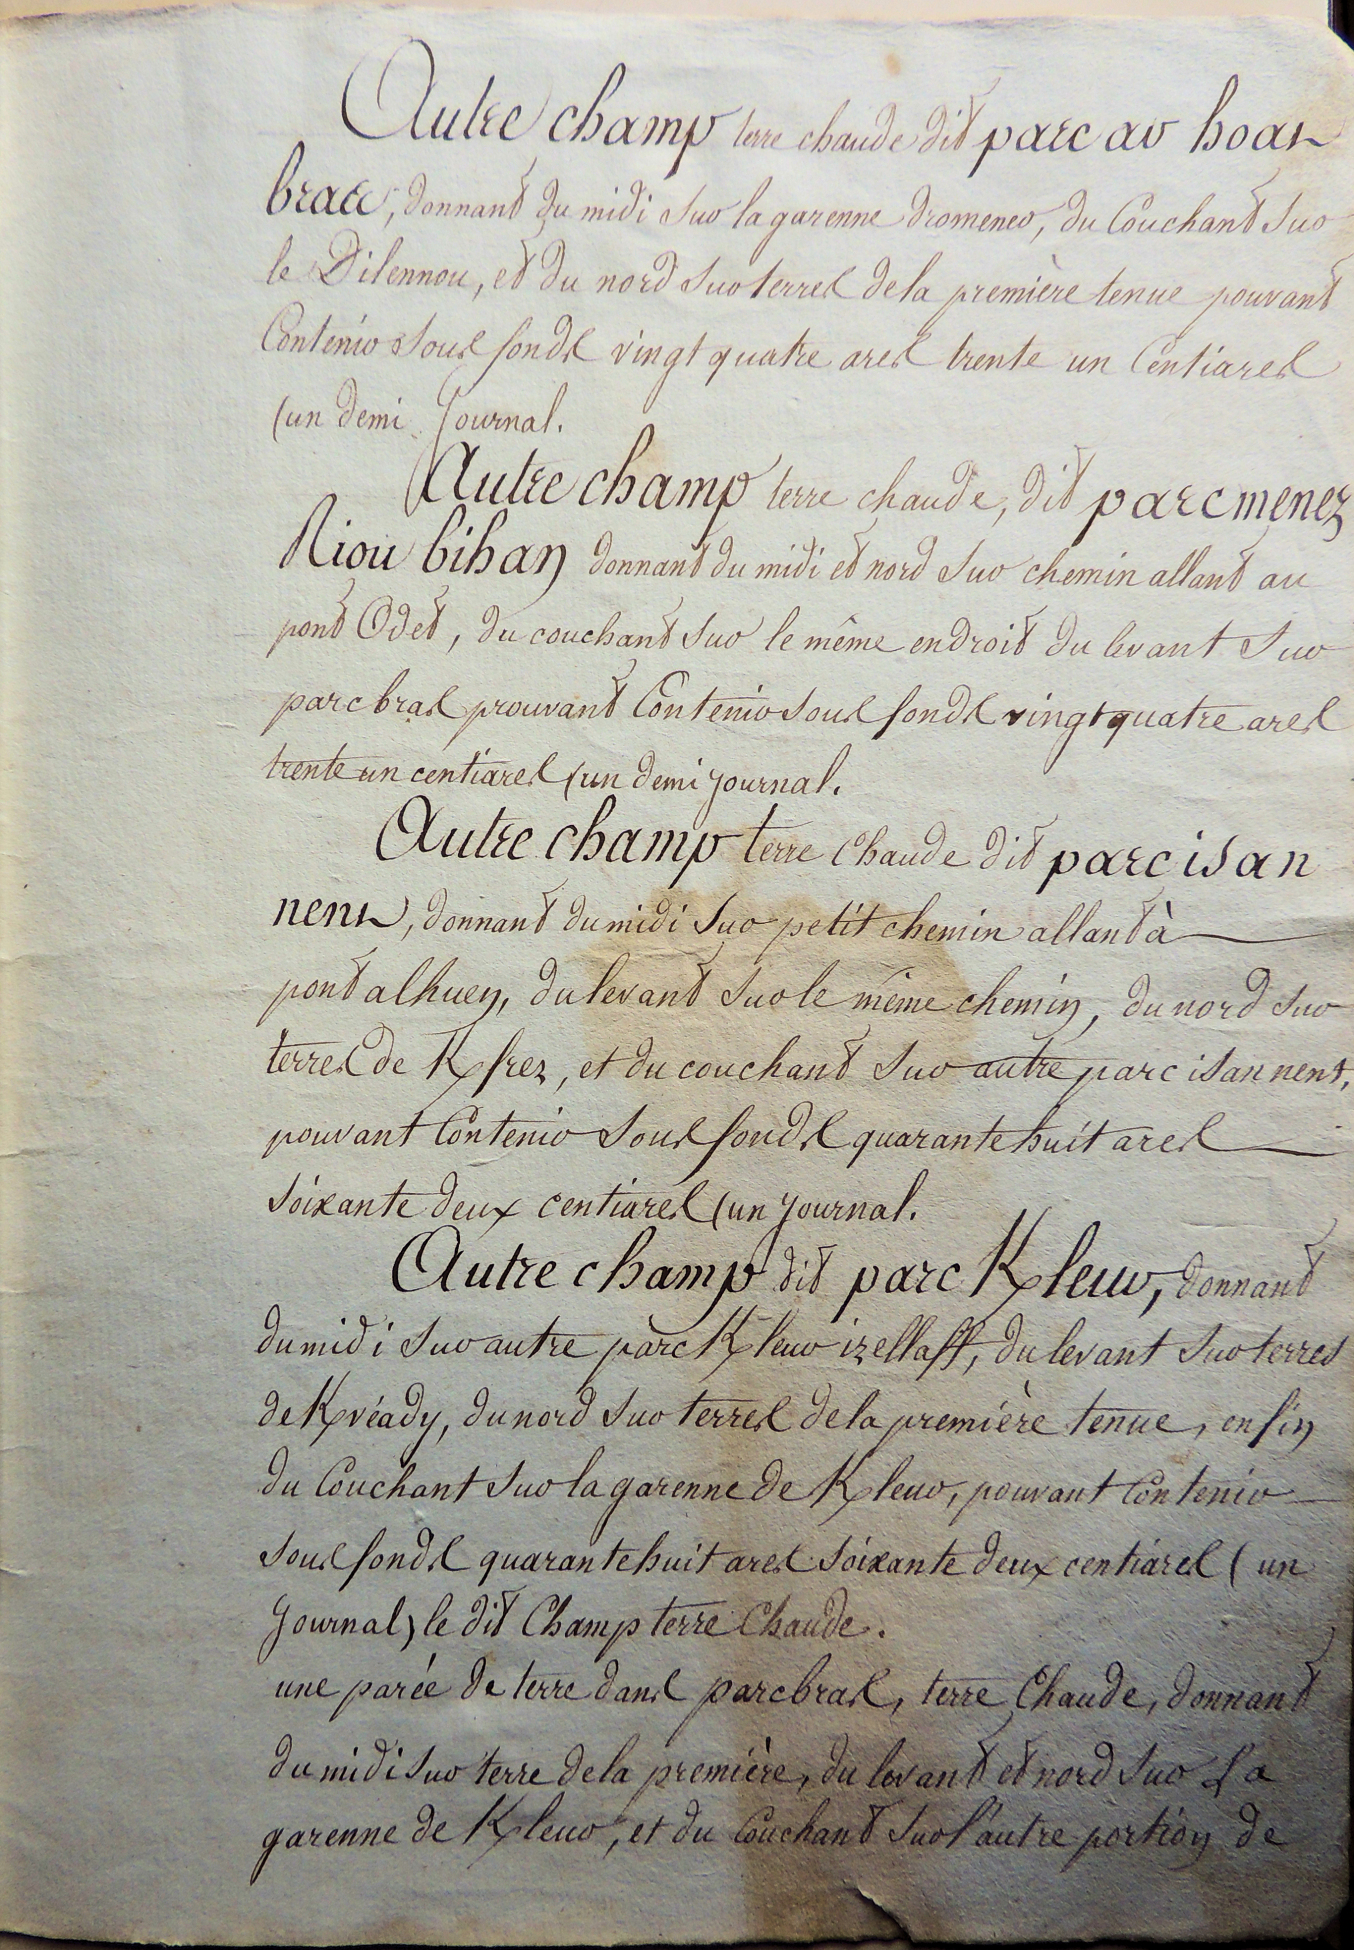 Autre champ terre chaude dit parc ar hoat
bras, donnant du midi sur la garenne dromener, du Couchant sur
le Dilennou, et du nord sur terres de la première tenue pouvant
Contenir sous fonds vingt quatre ares trente un Centiares
(un demi Journal.
Autre champ terre chaude, dit parc menez
Riou bihan donnant du midi et nord sur chemin allant au
pont Odet, du couchant sur le même endroit du levant sur
parc bras prouvant Contenir sous fonds vingt quatre ares
trente un centiares (un demi journal.
Autre champ terre Chaude dit parc isan
nent, donnant du midi sur petit chemin allant à
pont alhuen, du levant sur le même chemin, du nord sur
terres de K frez, et du couchant sur autre parc isan nent,
pouvant Contenir sous fonds quarante huit ares
soixante deux centiares (un journal.
Autre champ dit parc K leur, donnant
du midi sur autre parc K leur izellaff, du levant sur terres
de K véady, du nord sur terres de la première tenue, enfin
du Couchant sur la garenne de K leur, pouvant Contenir
sous fonds quarante huit ares soixante deux centiares (un
Journal) le dit Champ terre Chaude.
une parée de terre dans parc bras, terre Chaude, donnant
du midi sur terre de la première, du levant et nord sur La
garenne de K leur, et du Couchant sur l'autre portion de